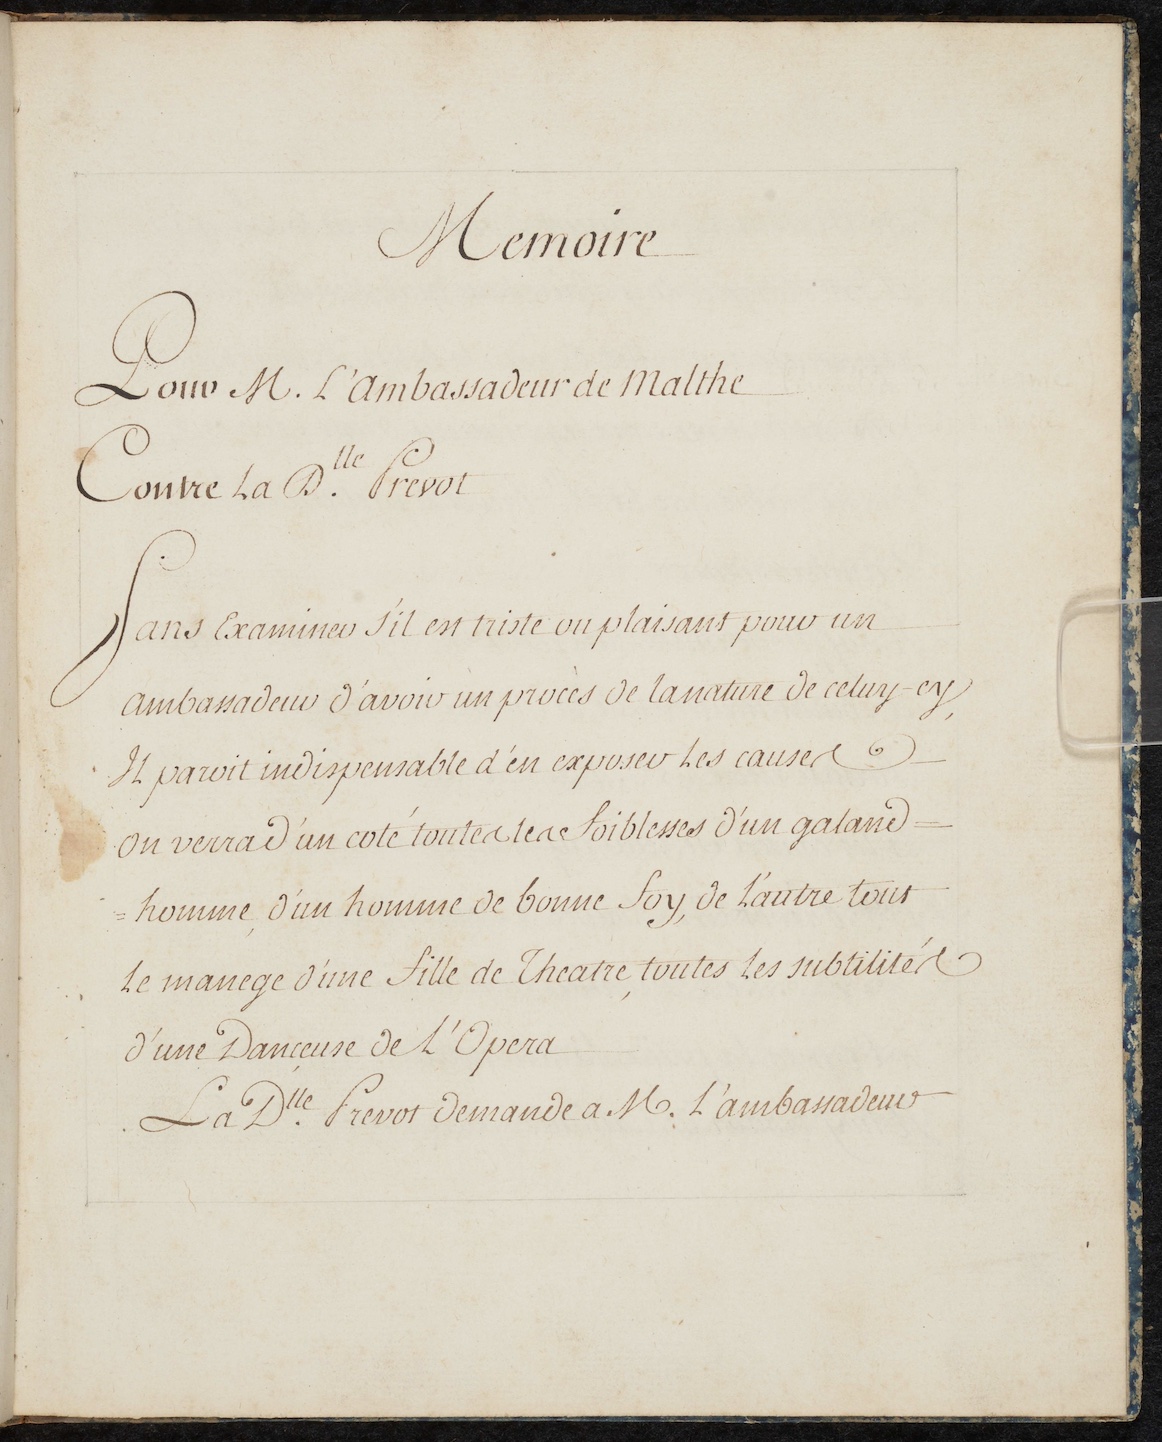 Memoire
Pour M. L'Ambassadeur de Malthe
Contre La D.lle Prevot
Sans Examiner s'il est triste ou plaisant pour un
Ambassadeur d'avoir un procès de la nature de celuy-cy,
Il paroit indispensable d'en exposer les causes
On verra d'un coté toutes les foiblesses d'un galand =
= homme, d'un homme de bonne foy, de l'autre tout
le manege d'une fille de Theatre, toutes les subtilités
d'une Danceuse de L'Opera
La D.lle Prevot demande a M. L'ambassadeur